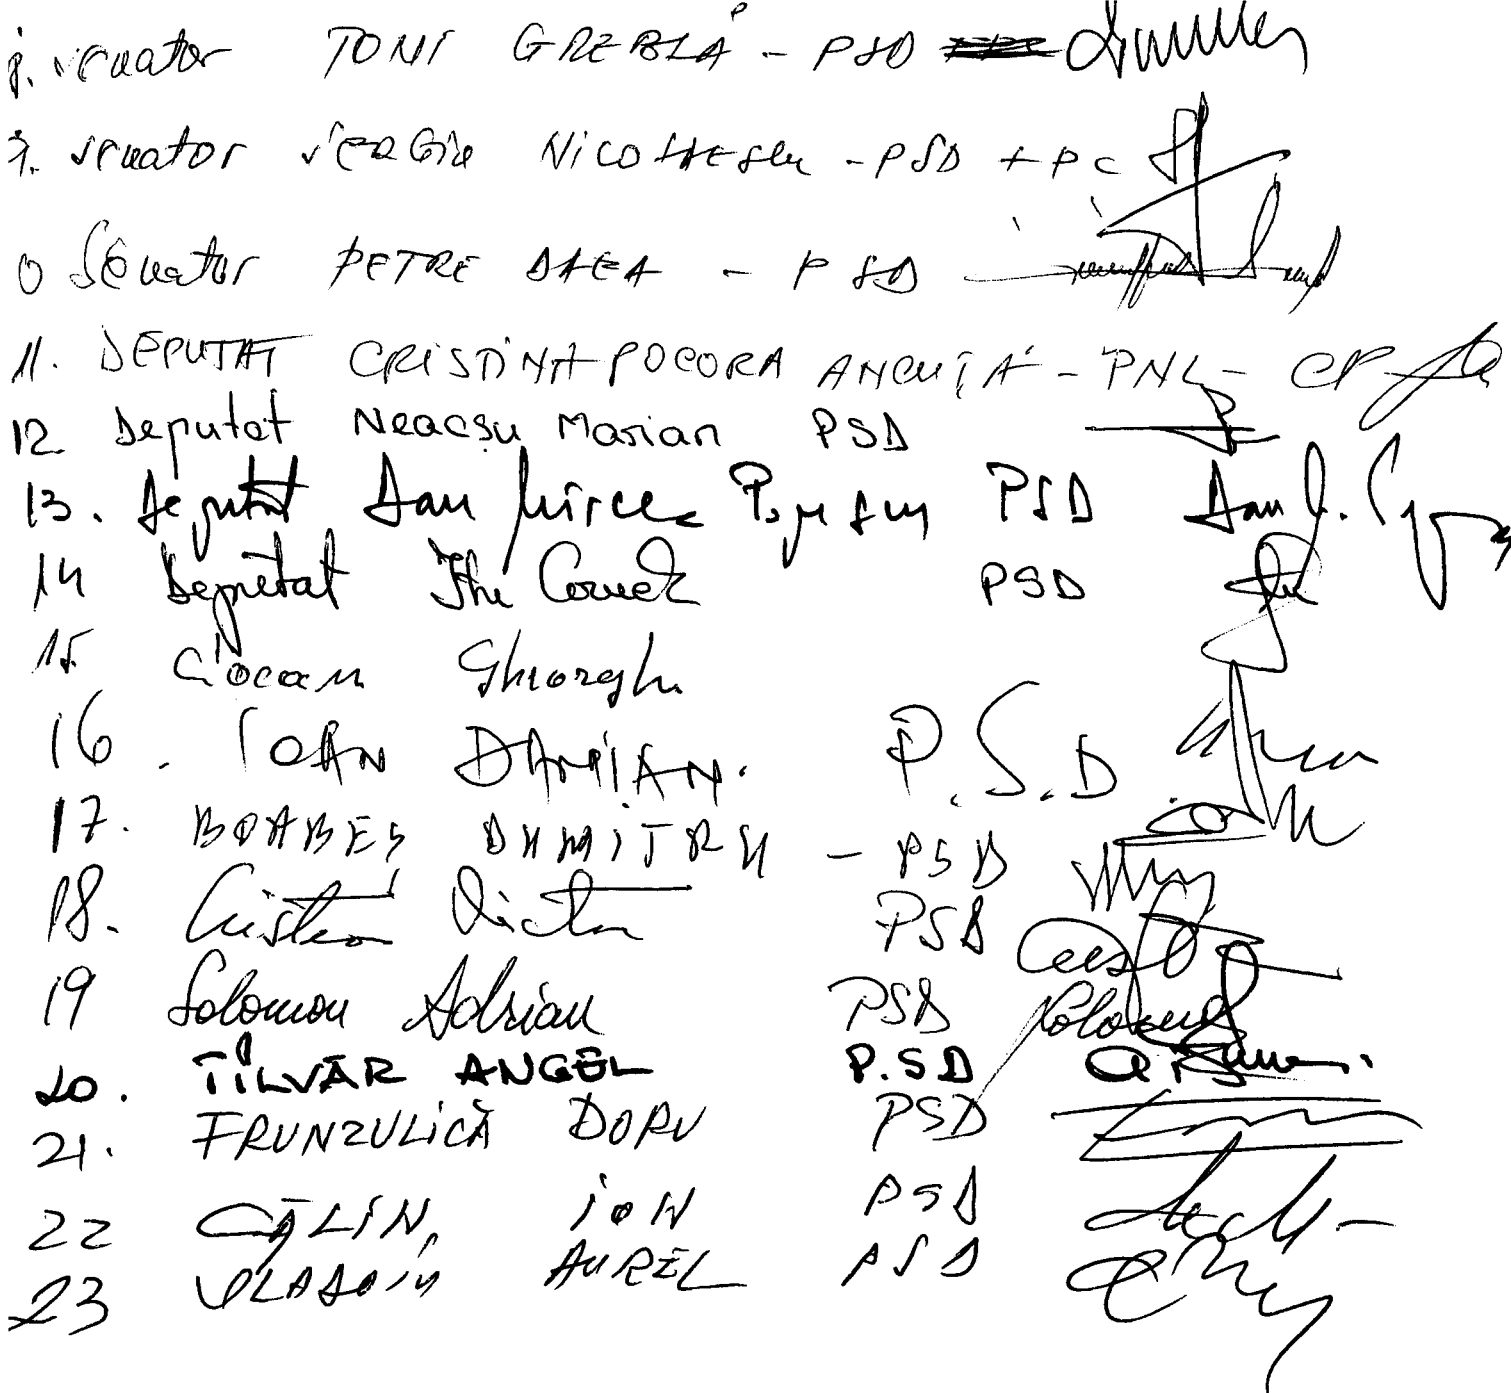 senator TONI GREBLĂ - PSD
senator SERGIU NICOLAESCU - PSD + PC
0 Senator PETRE DAEA - PSD
11. DEPUTAT CRISTINA POCORA ANCUȚA - PNL -
12 Deputat Neacsu Marian PSD
13. Deputat Dan Mircea Popescu PSD
14 Deputat Itu Cornel PSD
15 Ciocan Gheorghe
16. IOAN DAMIAN. P.S.D.
17. BOABES DUMITRU - PSD
18. Cristea Victor PSD
19 Solomon Adrian PSD Solomon
20. TÎLVĂR ANGEL P.SD
21. FRUNZULICĂ DORU PSD
22 CĂLIN, ION PSD
23 VLĂDOIU AUREL PSD